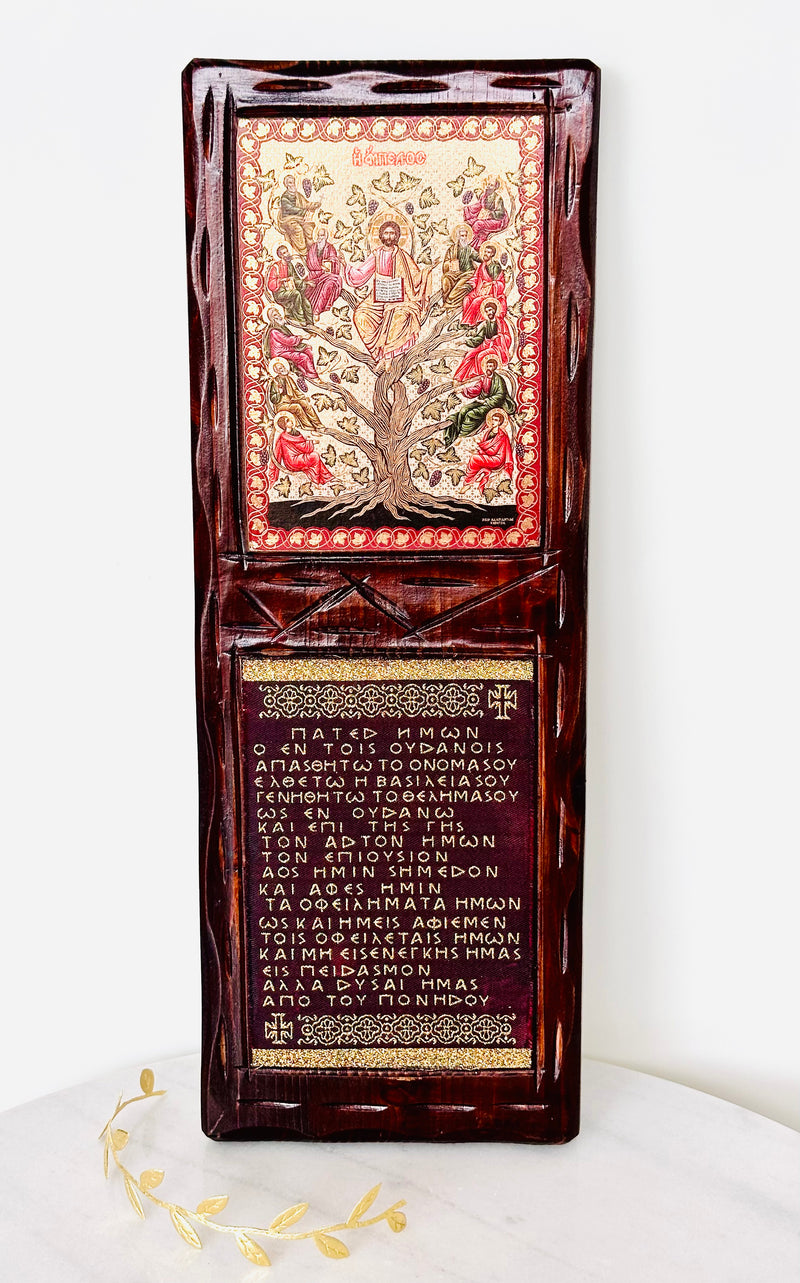 Η ΑΜΠΕΛΟΣ
ΠΑΤΕΡ ΗΜΩΝ
Ο ΕΝ ΤΟΙΣ ΟΥΡΑΝΟΙΣ
ΑΓΙΑΣΘΗΤΩ ΤΟ ΟΝΟΜΑ ΣΟΥ
ΕΛΘΕΤΩ Η ΒΑΣΙΛΕΙΑ ΣΟΥ
ΓΕΝΗΘΗΤΩ ΤΟ ΘΕΛΗΜΑ ΣΟΥ
ΩΣ ΕΝ ΟΥΡΑΝΩ
ΚΑΙ ΕΠΙ ΤΗΣ ΓΗΣ
ΤΟΝ ΑΡΤΟΝ ΗΜΩΝ
ΤΟΝ ΕΠΙΟΥΣΙΟΝ
ΔΟΣ ΗΜΙΝ ΣΗΜΕΡΟΝ
ΚΑΙ ΑΦΕΣ ΗΜΙΝ
ΤΑ ΟΦΕΙΛΗΜΑΤΑ ΗΜΩΝ
ΩΣ ΚΑΙ ΗΜΕΙΣ ΑΦΙΕΜΕΝ
ΤΟΙΣ ΟΦΕΙΛΕΤΑΙΣ ΗΜΩΝ
ΚΑΙ ΜΗ ΕΙΣΕΝΕΓΚΗΣ ΗΜΑΣ
ΕΙΣ ΠΕΙΡΑΣΜΟΝ
ΑΛΛΑ ΡΥΣΑΙ ΗΜΑΣ
ΑΠΟ ΤΟΥ ΠΟΝΗΡΟΥ